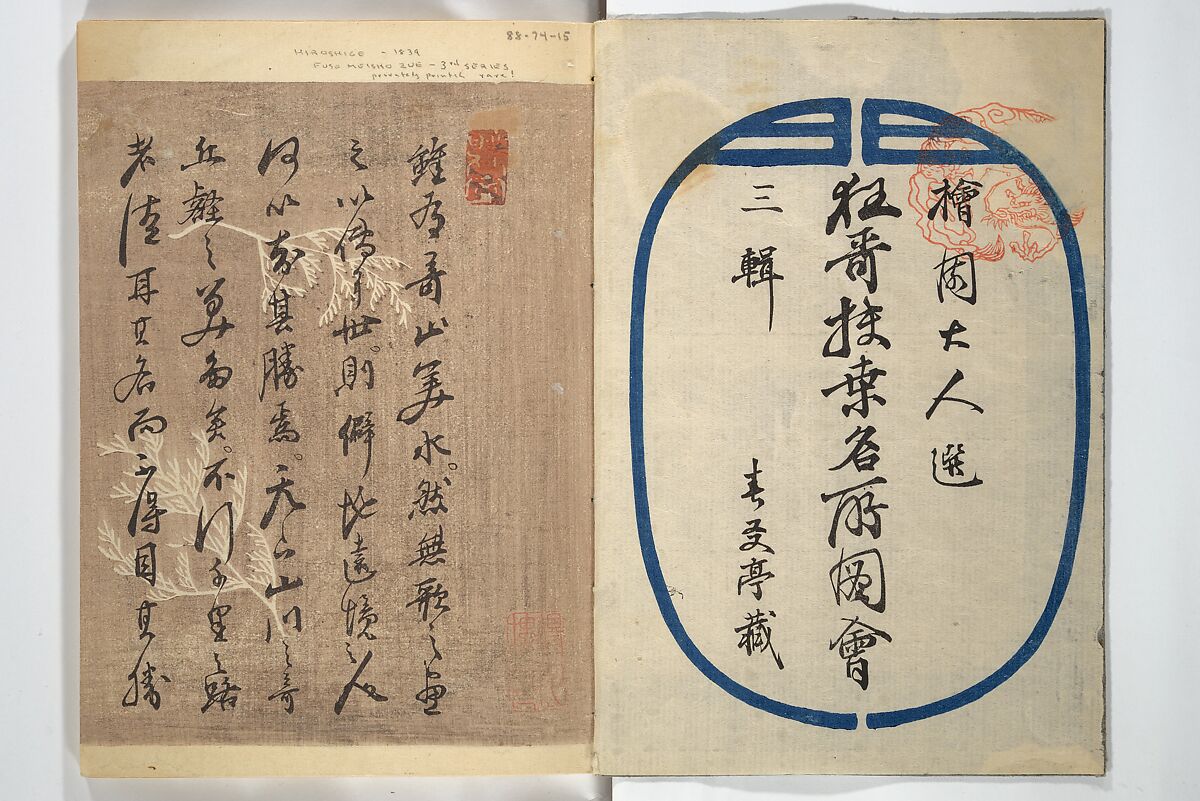 檜園大人選
狂哥扶桑名所圖會
三輯
春友亭藏
88-74-15
HIROSHIGE - 1839
FUSO MEISHO ZUE - 3rd SERIES
privately printed rare!
雖有奇山美水。然無歌之画
之以傳于世。則僻地遠境之人
何以知其勝焉。天下山川之奇
丘壑之美多矣。不行千里之路
者徒耳其名而不得目其勝